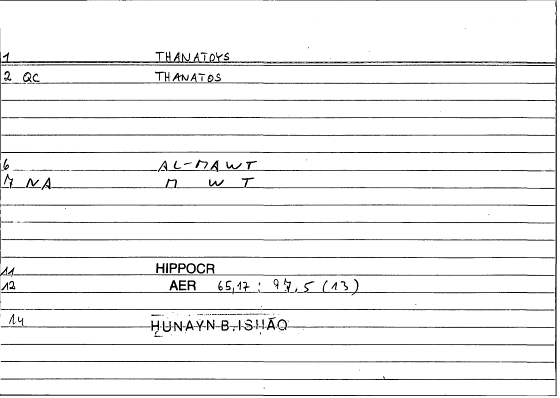 1 THANATOYS
2 QC THANATOS
6 AL-MAWT
7 NA M W T
11 HIPPOCR
12 AER 65,17 : 97,5 (13)
14 ḤUNAYN B. ISḤĀQ